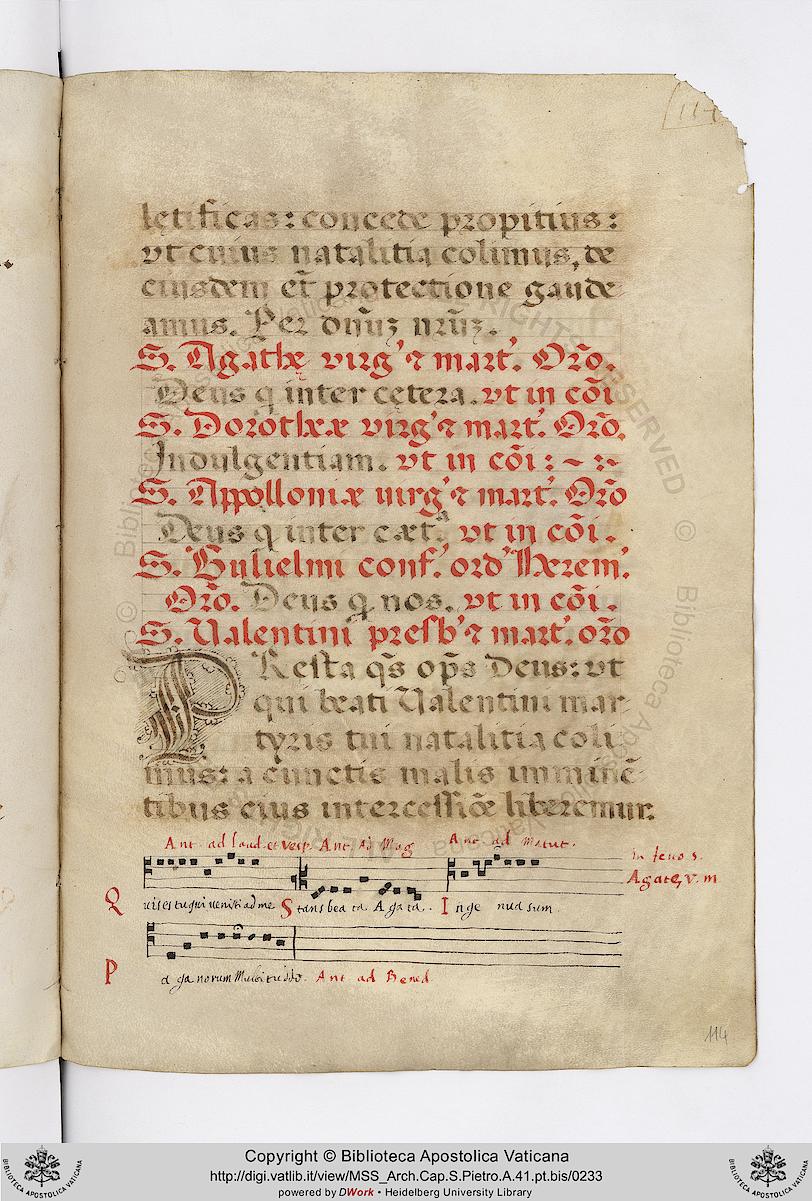 114
lętificas: concede propitius:
vt cuius natalitia colimus, de
eiusdem et̃ protectione gaude
amus. Per dñuȝ nr̃uȝ.
S. Agathæ virg' ⁊ mart'. Orõ.
Deus q inter cętera. vt in cõi
S. Dorotheæ virg' ⁊ mart'. Orõ.
Indulgentiam. vt in cõi: ~ :~
S. Appolloniæ uirg' ⁊ mart'. Orõ
Deus q inter cæt.ᵃ vt in cõi.
S. Gulielmi conf.' ord' Herem.'
Orõ. Deus q nos. vt in cõi.
S. Valentini presb' ⁊ mart'. orõ
PResta qs̃ op̃s Deus: vt
qui beati Valentini mar-
tyris tui natalitia coli
mus: a cunctis malis imminẽ
tibus eius intercessiõe liberemur.
Ant. ad laud. et vesp. Ant. ad Mag Ant ad Matut.
in festo s.
Agatę, v. m
Quis es tu qui venisti ad me Stans beata Agata. Ingenua sum.
Paganorum Multitudo. Ant ad Bened.
114
Copyright © Biblioteca Apostolica Vaticana
http://digi.vatlib.it/view/MSS_Arch.Cap.S.Pietro.A.41.pt.bis/0233
powered by DWork • Heidelberg University Library
BIBLIOTECA APOSTOLICA VATICANA
BIBLIOTECA APOSTOLICA VATICANA